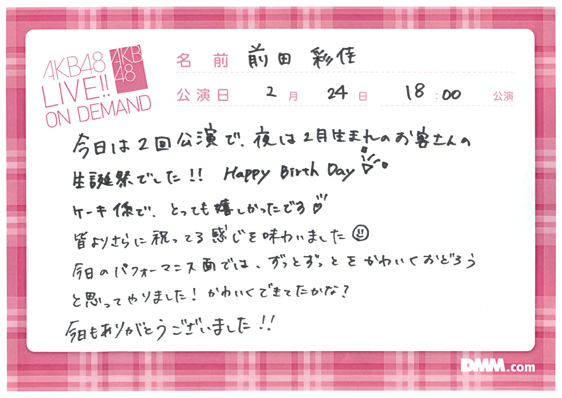 AKB48
LIVE!!
ON DEMAND
AKB
48
名前 前田 彩佳
公演日 2月 24日 18:00 公演
今日は2回公演で、夜は2月生まれのお客さんの
生誕祭でした!! Happy Birth Day
ケーキ係で、とっても嬉しかったです
皆よりさらに祝ってる感じを味わいました
今日のパフォーマンス面では、ずっとずっとをかわいくおどろう
と思ってやりました!かわいくできてたかな?
今日もありがとうございました!!
DMM.com